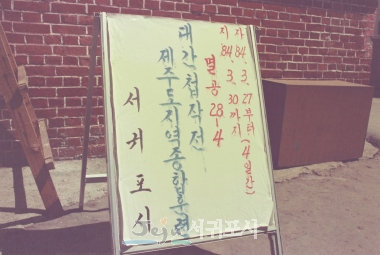 자 '84. 3. 27부터(4일간)
지 '84. 3. 30까지
멸공 28-4
대간첩작전
제주도지역종합훈련
서귀포시
서귀포시